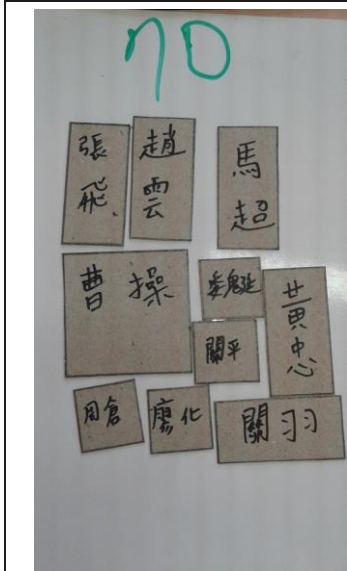 70
張飛
趙雲
馬超
曹操
魏延
黃忠
關平
周倉
廖化
關羽